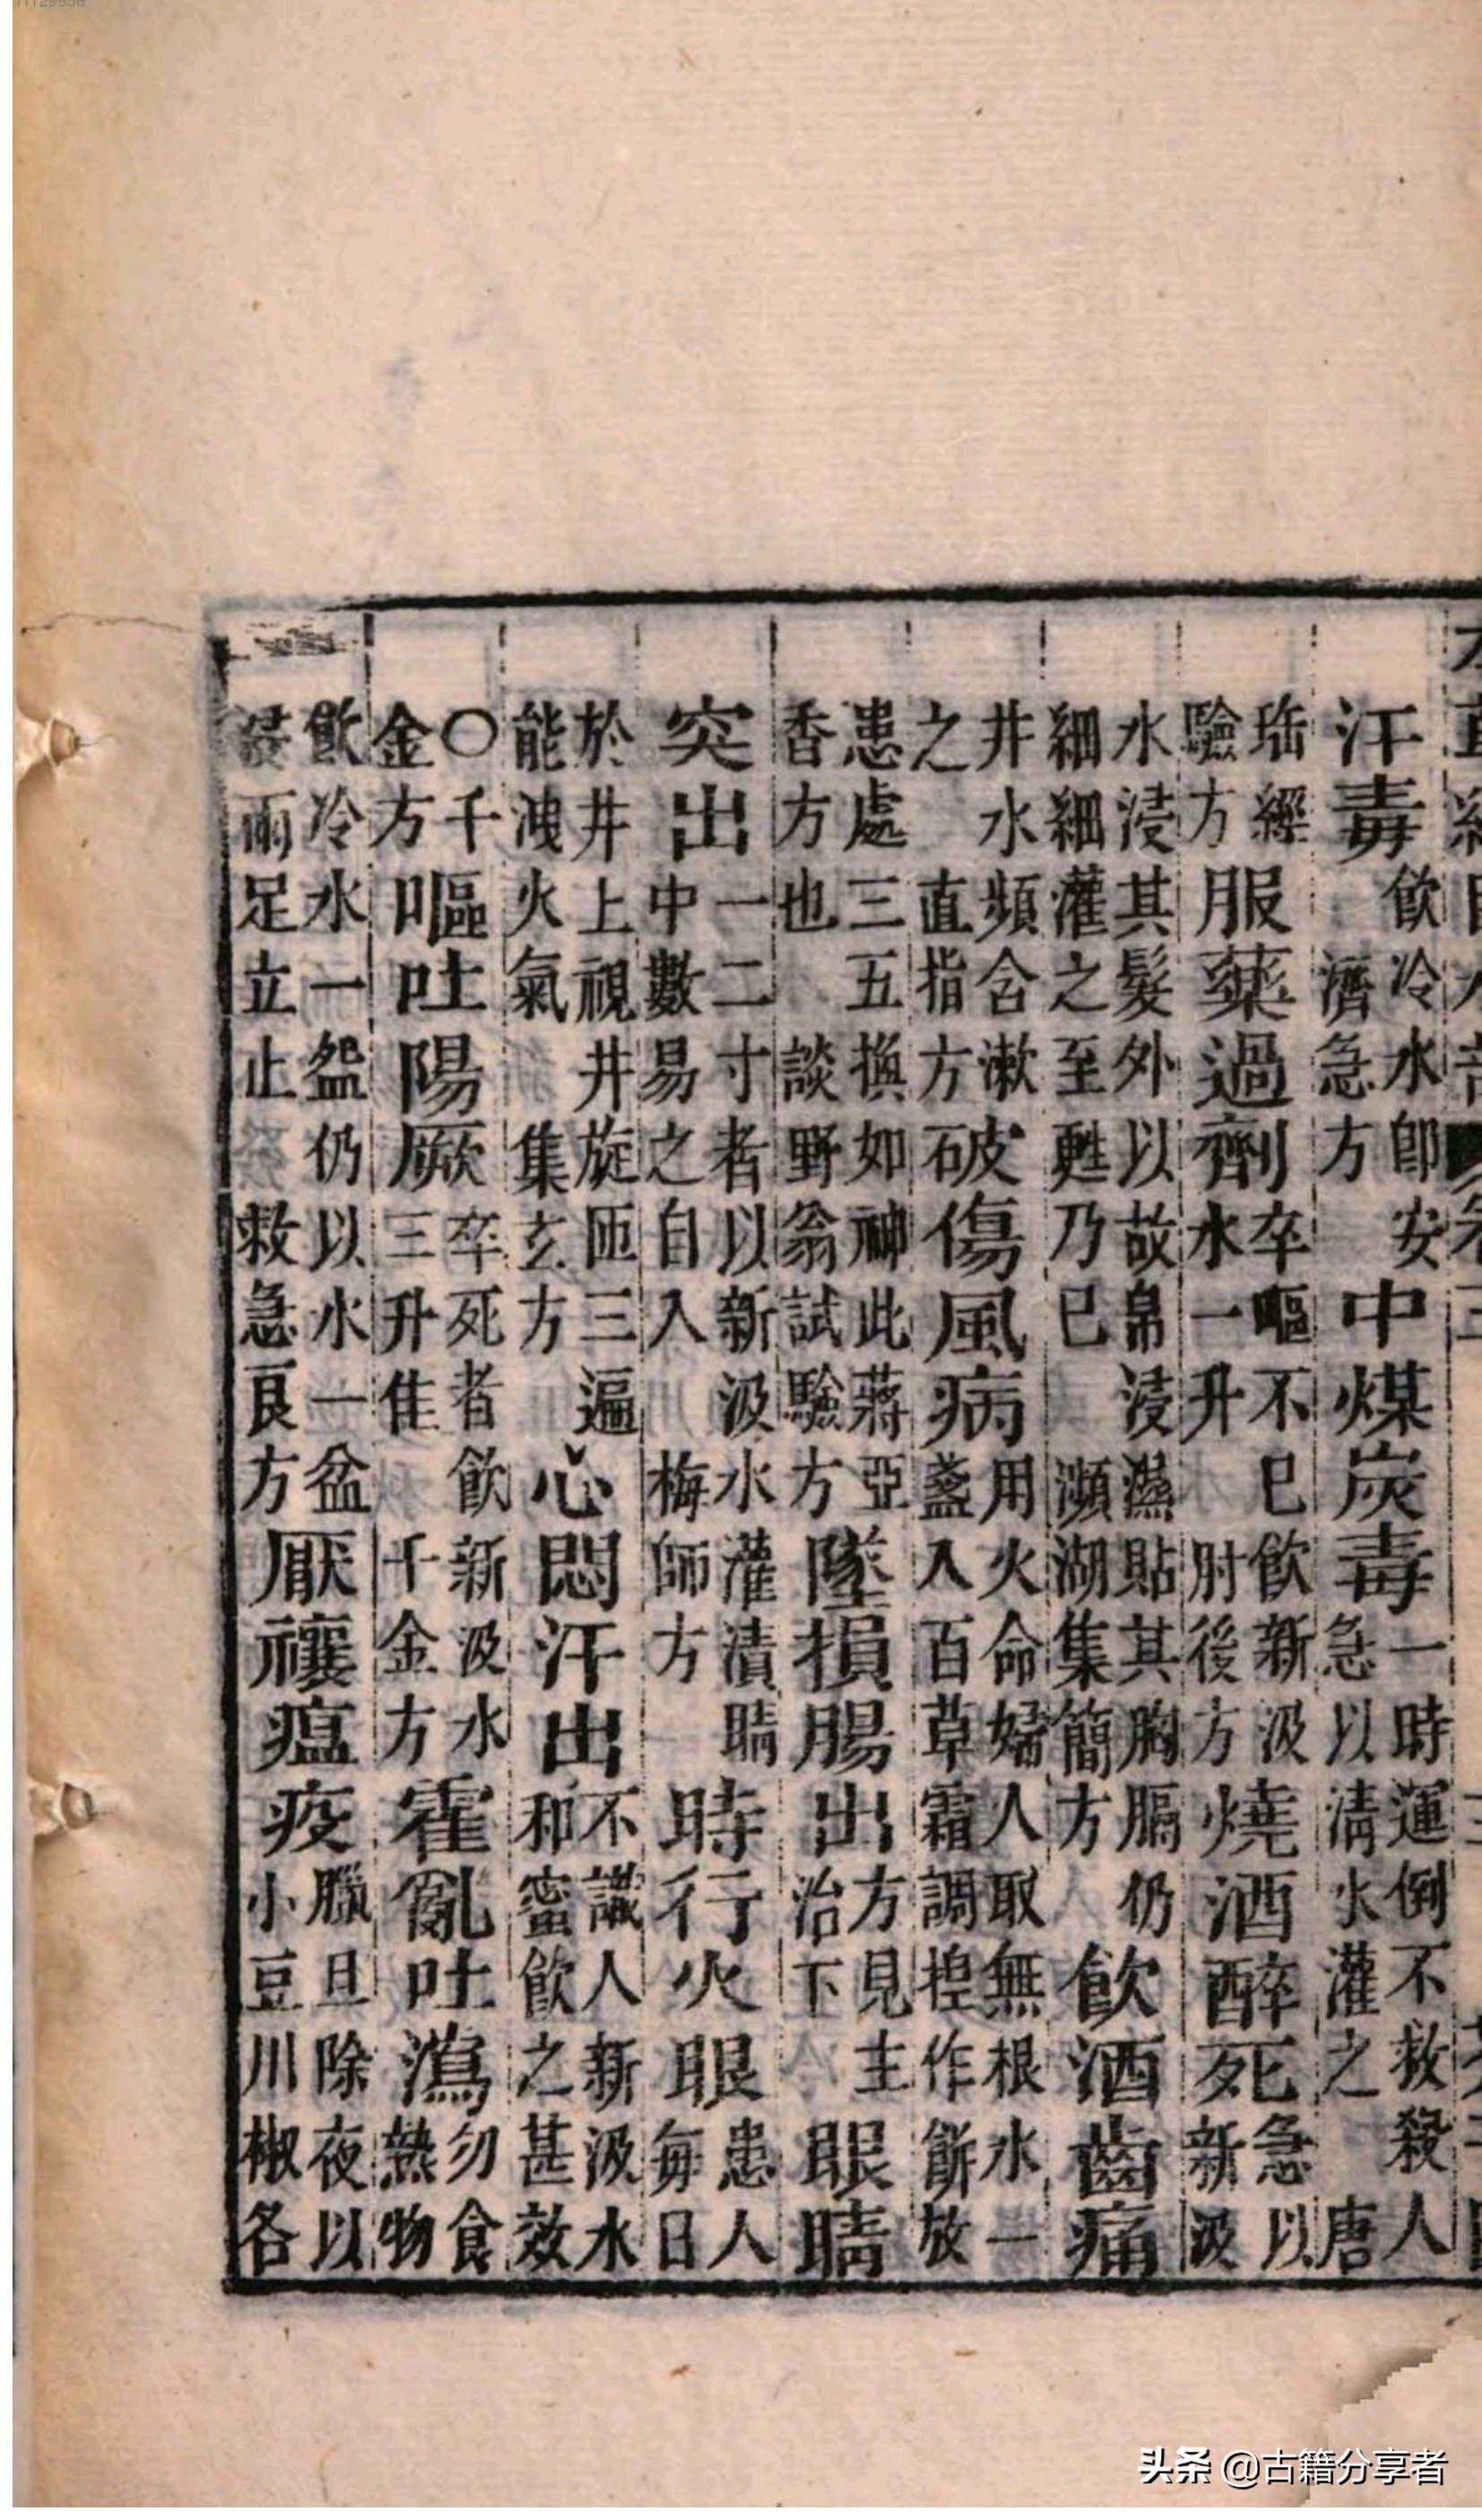 汗毒飲冷水即安濟急方中煤炭毒一時運倒不救殺人急以清水灌之唐
珤經驗方服藥過劑卒嘔不已飲新汲水一升肘後方燒酒醉死急以新汲
水浸其髮外以故帛浸濕貼其胸膈仍細細灌之至甦乃已瀕湖集簡方飲酒齒痛
井水頻含漱之直指方破傷風病用火命婦人取無根水一盞入百草霜調捏作餅放
患處三五換如神此蔣亞香方也談野翁試驗方墜損腸出方見主治下眼睛
突出一二寸者以新汲水灌漬睛中數易之自入梅師方時行火眼患人每日
於井上視井旋匝三遍能洩火氣集玄方心悶汗出不識人新汲水和蜜飲之甚效
〇千金方嘔吐陽厥卒死者飲新汲水三升佳千金方霍亂吐瀉勿食熱物
飲冷水一盌仍以水一盆浸兩足立止救急良方厭禳瘟疫臘旦除夜以小豆川椒各
头条 @古籍分享者